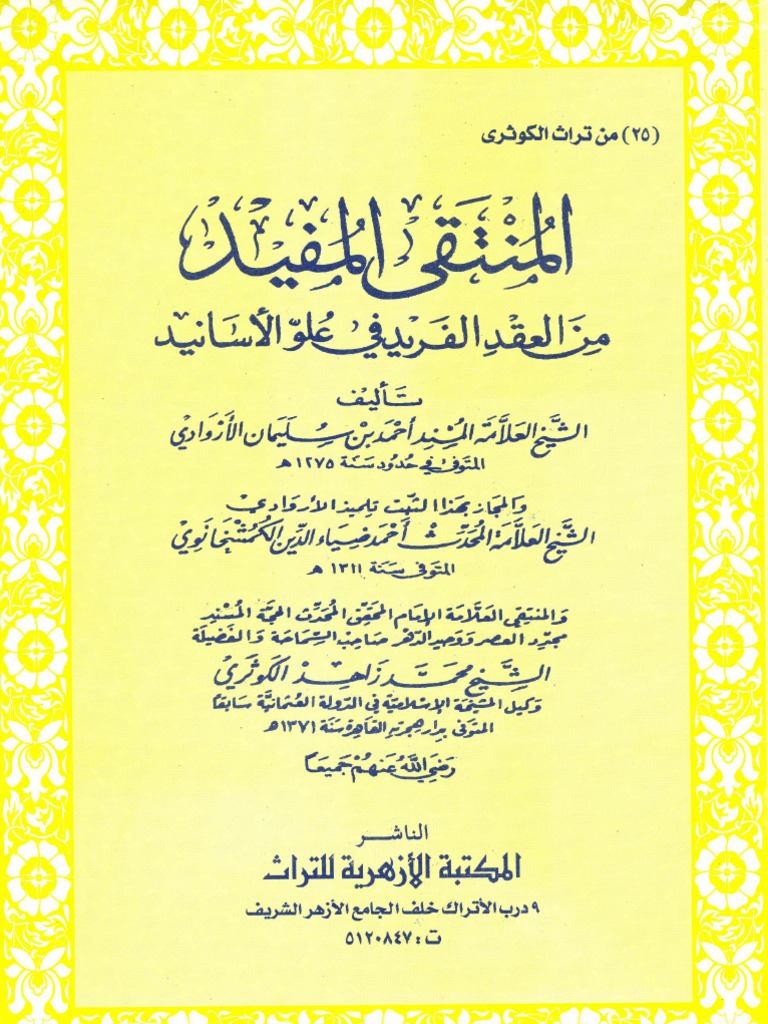 (٢٥) من تراث الكوثرى
المُنْتَقَى المُفيد
مِنَ العِقْدِ الفَريد في عُلوّ الأسَانيد
تأليف
الشَّيخ العَلاَّمَة المُسْنِد أحْمَد بْن سُلَيمَان الأرْوَادي
المتوفى في حُدُود سَنَة ١٢٧٥ هـ
والمجاز بهذا الثبت تلميذ الأروادي
الشَّيخ العَلاَّمَة المُحَدِّث أَحْمَد ضِيَاء الدِّين الكُمُشْخَانَوِي
المتوفى سَنَة ١٣١١ هـ
وَالمنتقي العَلاَّمَة الإمَام المحقق المُحَدِّث الحجَّة المُسْنِد
مجدّد العصر ووحيد الدّهر صَاحِب السَّمَاحَة وَالفَضيلَة
الشِّيخ محمَّد زَاهِد الكَوثَري
وَكيل المَشيَخة الإسْلاميّة في الدَولة العُثمانيَّة سَابقاً
المتوفى بدار هجرته القاهرة سَنَة ١٣٧١ هـ
رَضِيَ اللَّهُ عَنهُمْ جَميعَاً
الناشر
المكتبة الأزهرية للتراث
٩ درب الأتراك خلف الجامع الأزهر الشريف
ت : ٥١٢٠٨٤٧